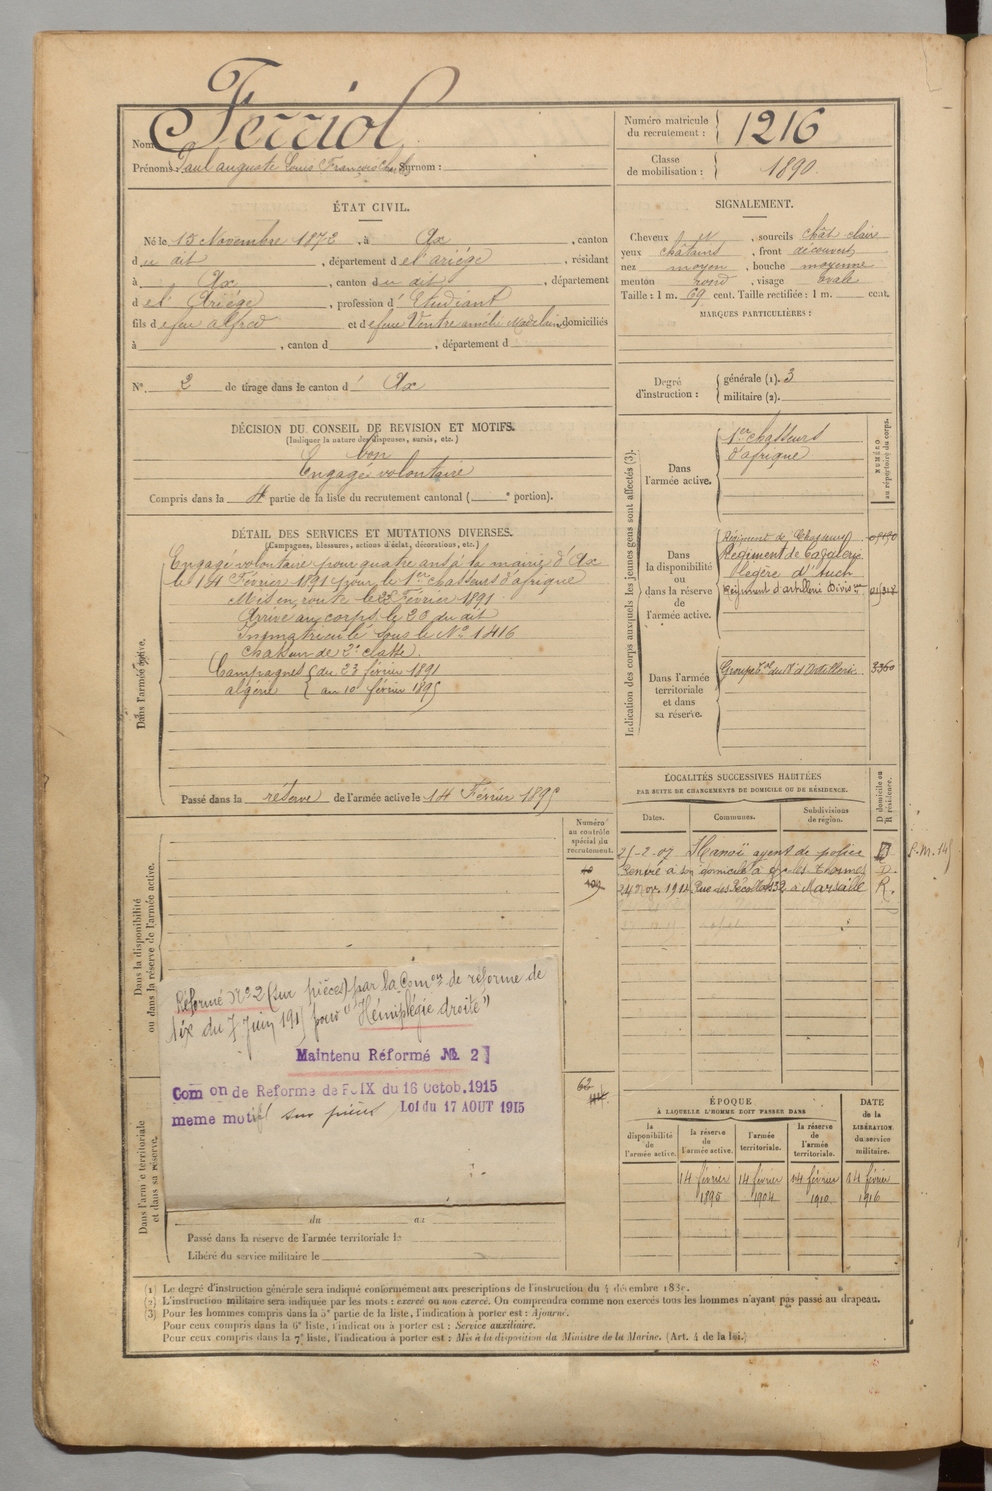 Nom : Ferriol
Prénoms : Paul auguste Louis François Surnom :
Numéro matricule du recrutement : 1216
Classe de mobilisation : 1890.
ÉTAT CIVIL.
Né le 15 Novembre 1872, à Ax, canton
du dit, département de l'ariège, résidant
à Ax, canton du dit, département
de l'Ariège, profession d'Etudiant
fils de feu alfred et de feue Ventre Madelaine, domiciliés
à , canton d , département d
N° 2 de tirage dans le canton d' Ax
SIGNALEMENT.
Cheveux et , sourcils chât clairs
yeux châtains , front découvert
nez moyen , bouche moyenne
menton rond , visage ovale
Taille : 1 m. 69 cent. Taille rectifiée : 1 m. cent.
MARQUES PARTICULIÈRES :
Degré d'instruction : générale (1). 3
militaire (2).
DÉCISION DU CONSEIL DE REVISION ET MOTIFS.
(Indiquer la nature des dispenses, sursis, etc.)
bon
Engagé volontaire
Compris dans la 4e partie de la liste du recrutement cantonal ( e portion).
DÉTAIL DES SERVICES ET MUTATIONS DIVERSES.
(Campagnes, blessures, actions d'éclat, décorations, etc.)
Dans l'armée active.
Engagé volontaire pour quatre ans à la mairie d'Ax
le 14 Février 1891 pour le 1er chasseurs d'afrique
Mis en route le 22 Février 1891
Arrivé au corps le 23 du dit
Immatriculé sous le N° 1416
chasseur de 2e classe.
Campagnes du 23 février 1891
algérie au 10 février 1895
Passé dans la réserve de l'armée active le 14 Février 1895
Indication des corps auxquels les jeunes gens sont affectés (3).
NUMÉRO au répertoire du corps.
Dans l'armée active.
1er chasseurs
d'afrique
Dans la disponibilité ou dans la réserve de l'armée active.
Régiment de Chasseurs
Régiment de Cavalerie
légère d'Auch
Régiment d'artillerie Divisre
Dans l'armée territoriale et dans sa réserve.
Groupe du d'Artillerie 3360
LOCALITÉS SUCCESSIVES HABITÉES
PAR SUITE DE CHANGEMENTS DE DOMICILE OU DE RÉSIDENCE.
Dates. Communes. Subdivisions de région. D domicile ou R résidence.
25-2-07 Hanoï agent de police D
Rentré à son domicile à Ax les Thermes D.
24 Nov. 1914 Rue des Récollettes 32 à Marseille R.
Dans la disponibilité ou dans la réserve de l'armée active.
Numéro au contrôle spécial du recrutement.
Réformé N° 2 (sur pièces) par la Comon de réforme de
du 7 Juin 1915 pour "Hémiplégie droite"
Maintenu Réformé No 2
Com on de Reforme de FOIX du 16 Octob.1915
meme motif sur pièces Loi du 17 AOUT 1915
62
Dans l'armée territoriale et dans sa réserve.
du au
Passé dans la réserve de l'armée territoriale le
Libéré du service militaire le
ÉPOQUE
À LAQUELLE L'HOMME DOIT PASSER DANS
la disponibilité de l'armée active.
la réserve de l'armée active.
l'armée territoriale.
la réserve de l'armée territoriale.
DATE de la LIBÉRATION du service militaire.
14 février 1895
14 février 1904
14 février 1910
14 février 1916
(1) Le degré d'instruction générale sera indiqué conformément aux prescriptions de l'instruction du 4 décembre 1889.
(2) L'instruction militaire sera indiquée par les mots : exercé ou non exercé. On comprendra comme non exercés tous les hommes n'ayant pas passé au drapeau.
(3) Pour les hommes compris dans la 5e partie de la liste, l'indication à porter est : Ajourné.
Pour ceux compris dans la 6e liste, l'indication à porter est : Service auxiliaire.
Pour ceux compris dans la 7e liste, l'indication à porter est : Mis à la disposition du Ministre de la Marine. (Art. 4 de la loi.)